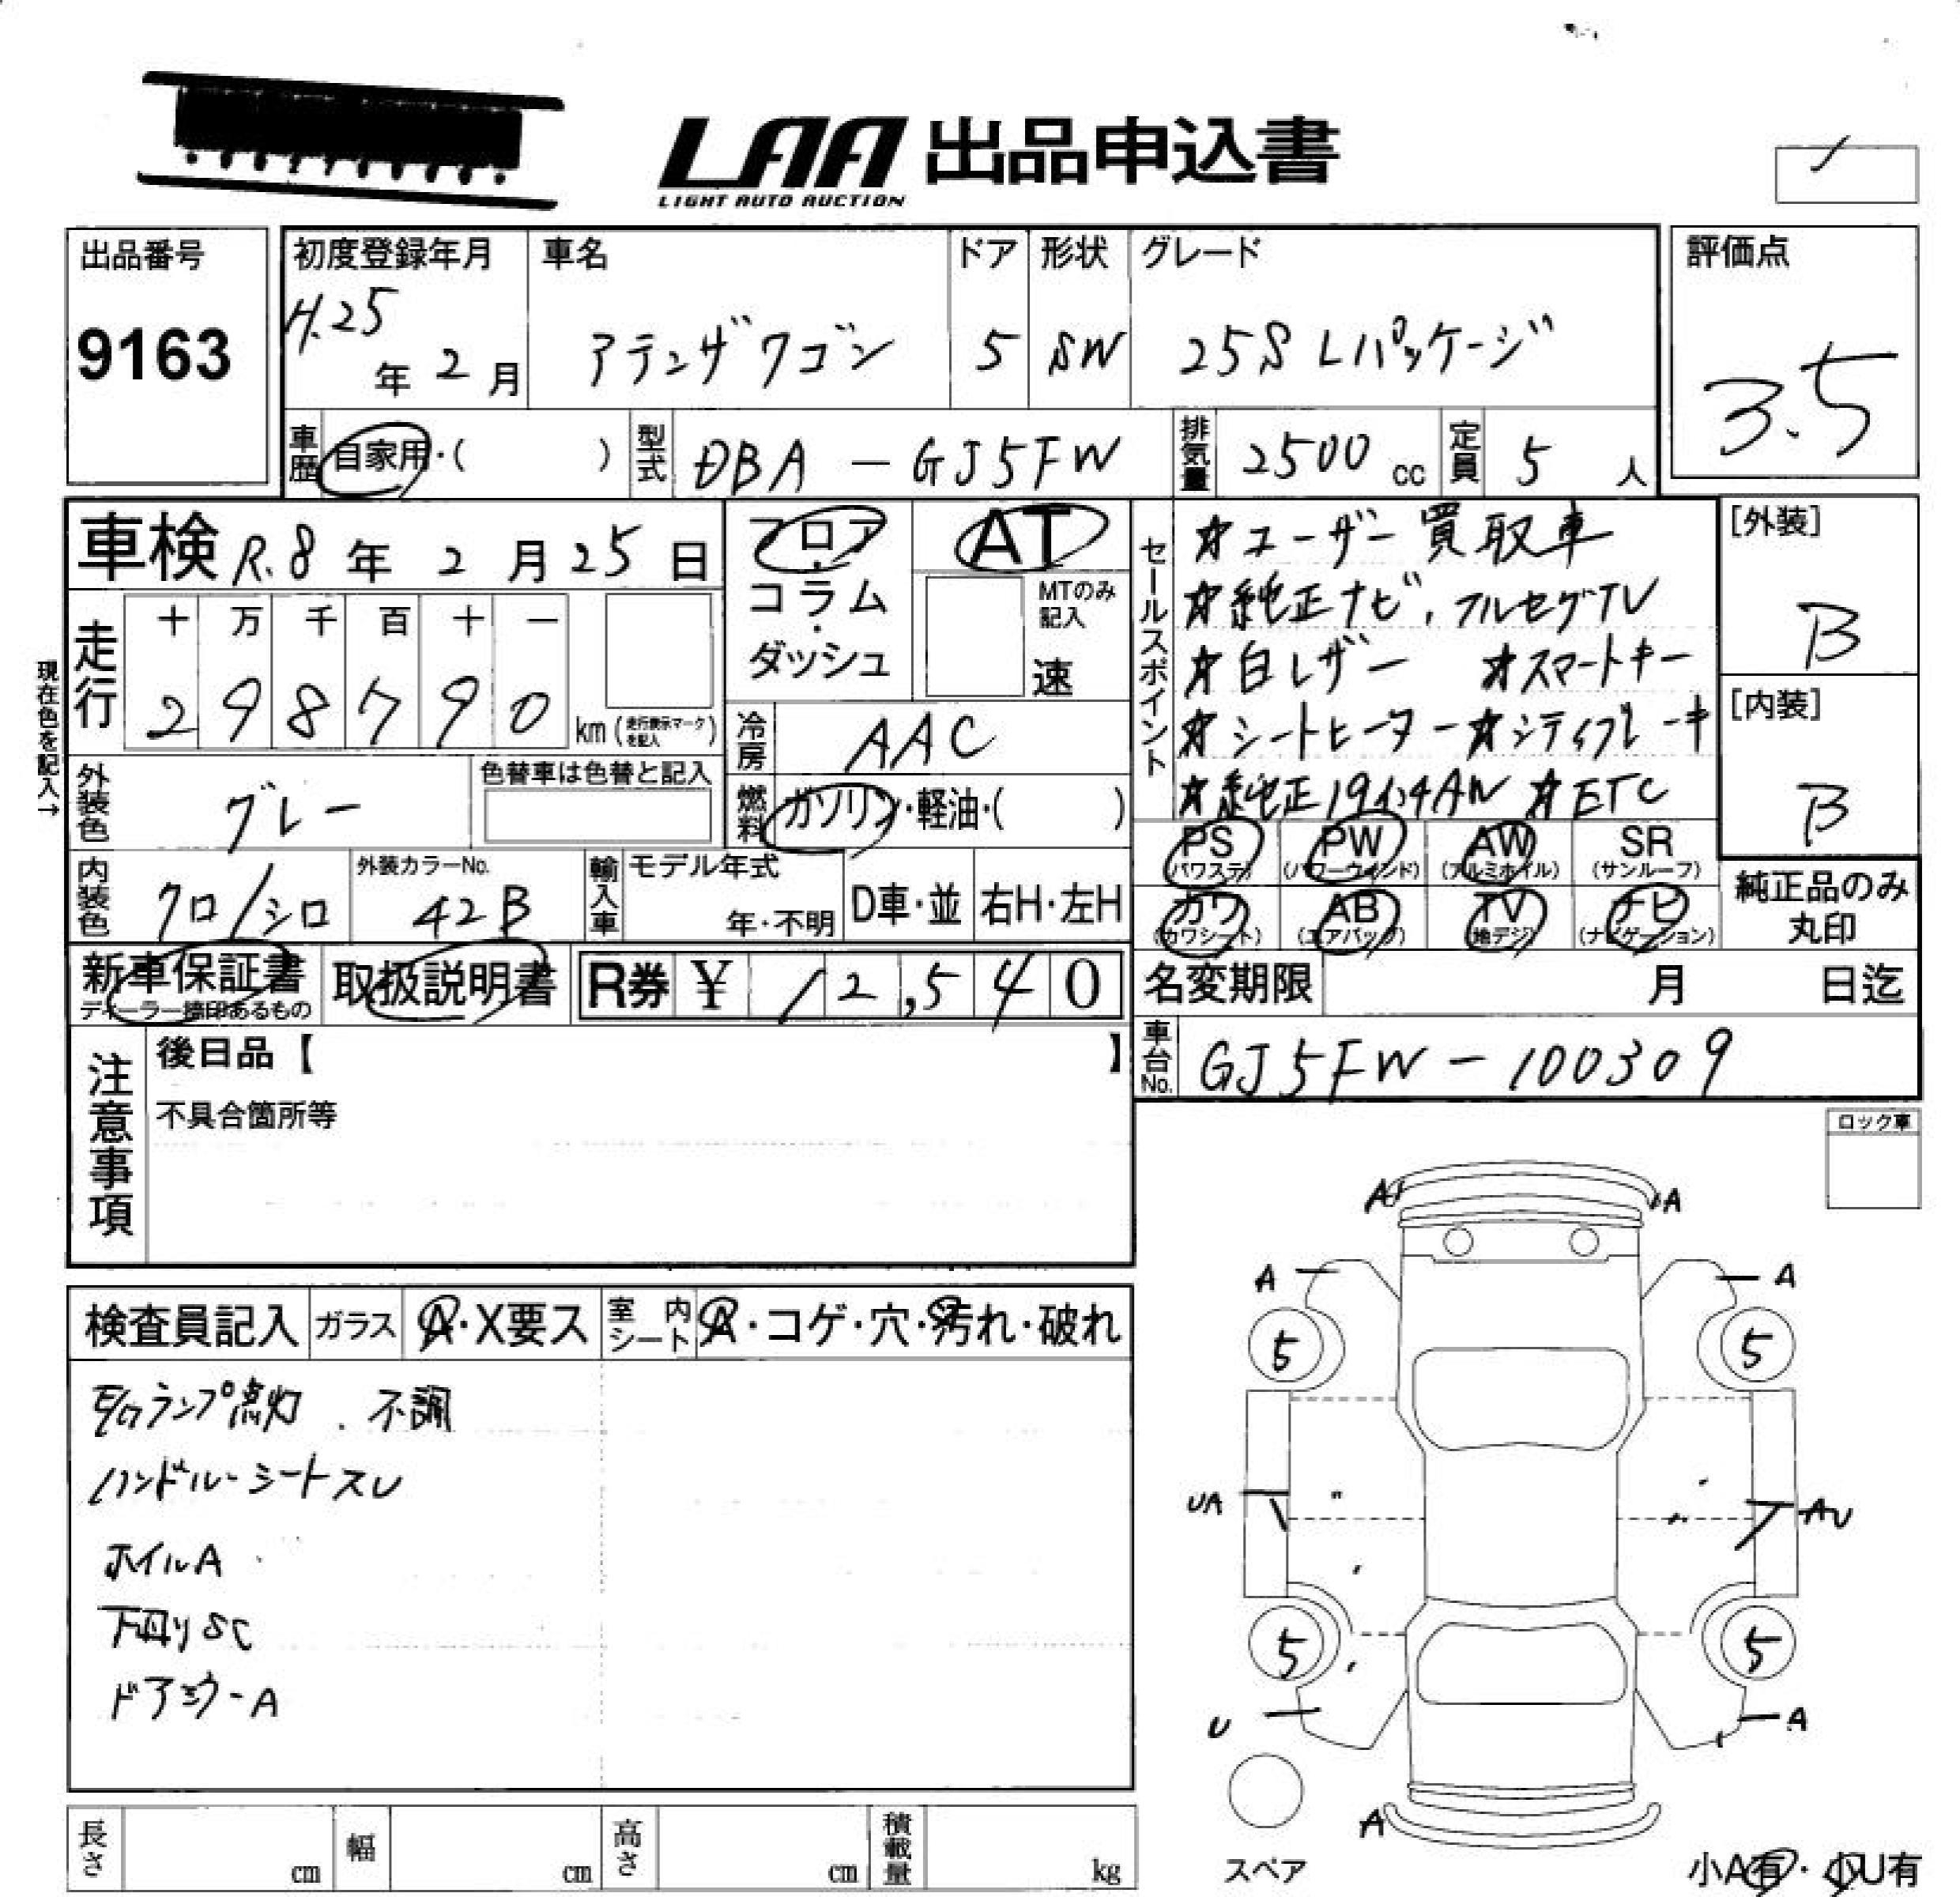 LAA 出品申込書
LIGHT AUTO AUCTION
出品番号
9163
初度登録年月
H.25年 2月
車名
アテンザワゴン
ドア
5
形状
SW
グレード
25S Lパッケージ
評価点
3.5
車歴 自家用・( )
型式 DBA-GJ5FW
排気量 2500 cc
定員 5 人
車検 R.8年 2月25日
現在色を記入→
走行
十 万 千 百 十 一
2 9 8 7 9 0 km(走行表示マークを記入)
フロア・コラム・ダッシュ
AT
MTのみ記入
速
冷房 AAC
燃料 ガソリン・軽油・( )
セールスポイント
★ユーザー買取車
★純正ナビ、フルセグTV
★白レザー ★スマートキー
★シートヒーター★シティブレーキ
★純正19インチAW ★ETC
[外装]
B
[内装]
B
外装色 グレー
色替車は色替と記入
内装色 クロ/シロ
外装カラーNo.
42B
輸入車
モデル年式
年・不明
D車・並
右H・左H
PS (パワステ)
PW (パワーウインド)
AW (アルミホイル)
SR (サンルーフ)
カワ (カワシート)
AB (エアバッグ)
TV (地デジ)
ナビ (ナビゲーション)
純正品のみ丸印
新車保証書
ディーラー捺印あるもの
取扱説明書
R券 ¥ 12,540
名変期限 月 日迄
車台No. GJ5FW-100309
注意事項
後日品【 】
不具合箇所等
ロック車
検査員記入
ガラス A・X要ス
室内シート A・コゲ・穴・汚れ・破れ
ランプ点灯、不調
ハンドル・シートスレ
ホイルA
下回りSC
ドアミラーA
A A
A A
5 5
UA AU
5 5
U A
A
スペア
小A有・小U有
長さ cm
幅 cm
高さ cm
積載量 kg